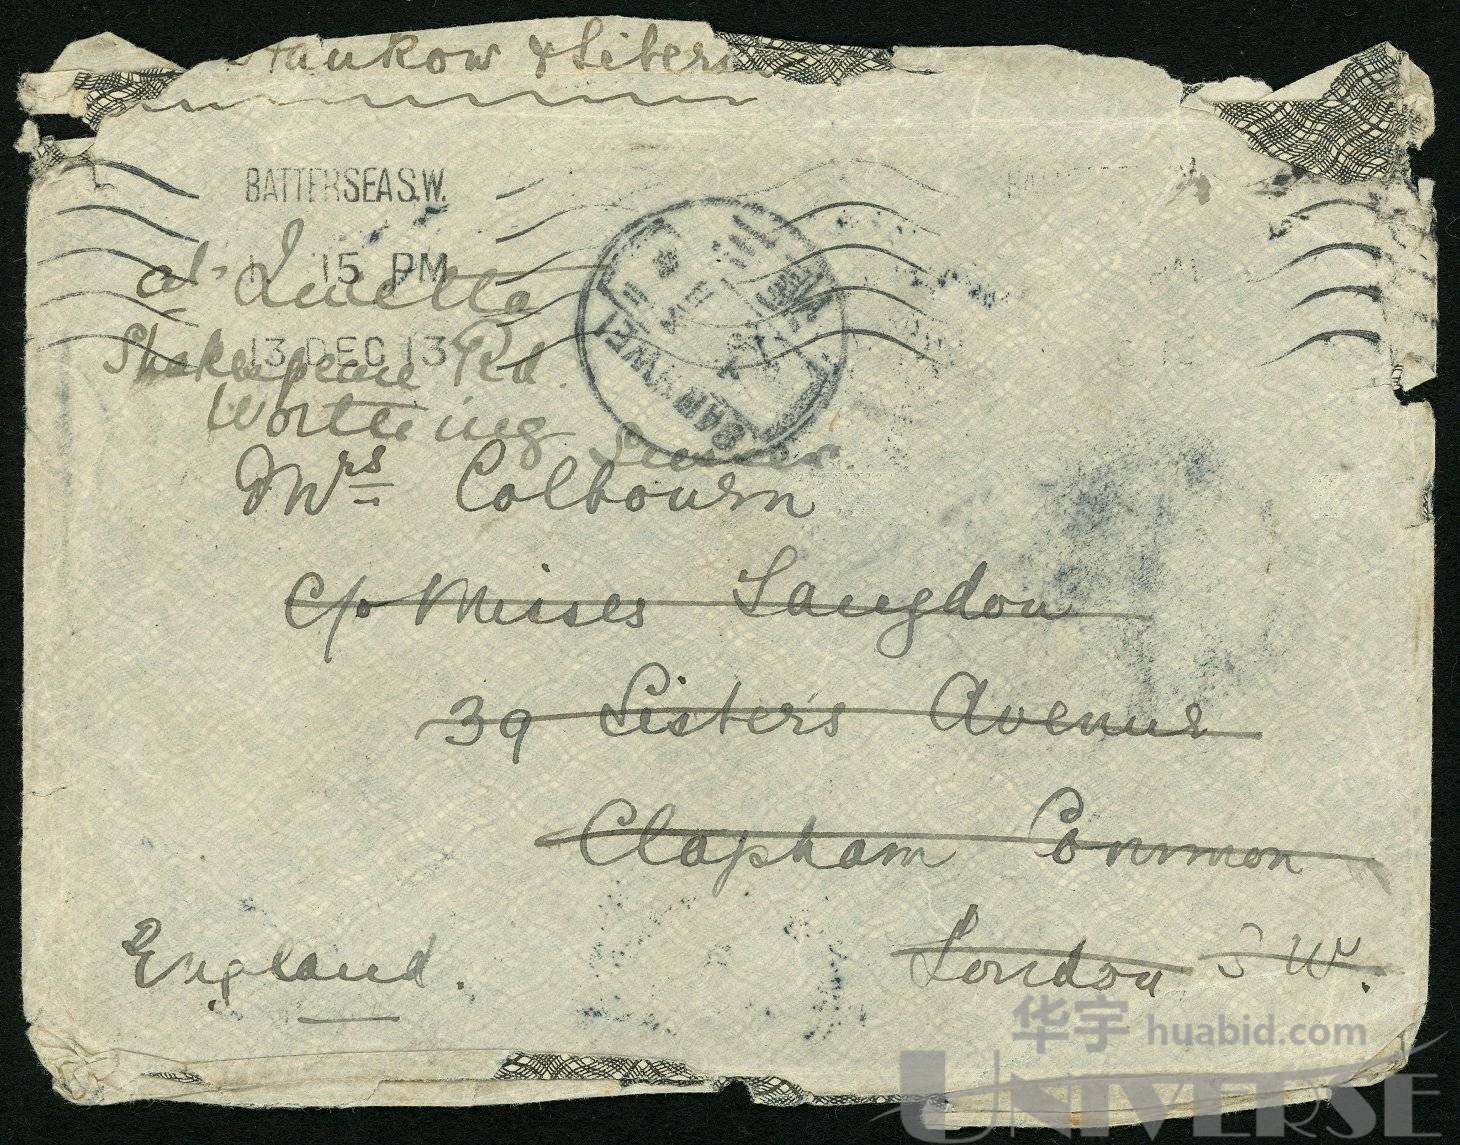 Hankow & Siberia
BATTERSEA S.W.
15 PM
13 DEC 13
at Quetta
Shakespeare Rd.
Worthing
Mrs Colbourn
c/o Misses Langdon
39 Sisters Avenue
Clapham Common
London S W.
England.
华宇 huabid.com
UNIVERSE